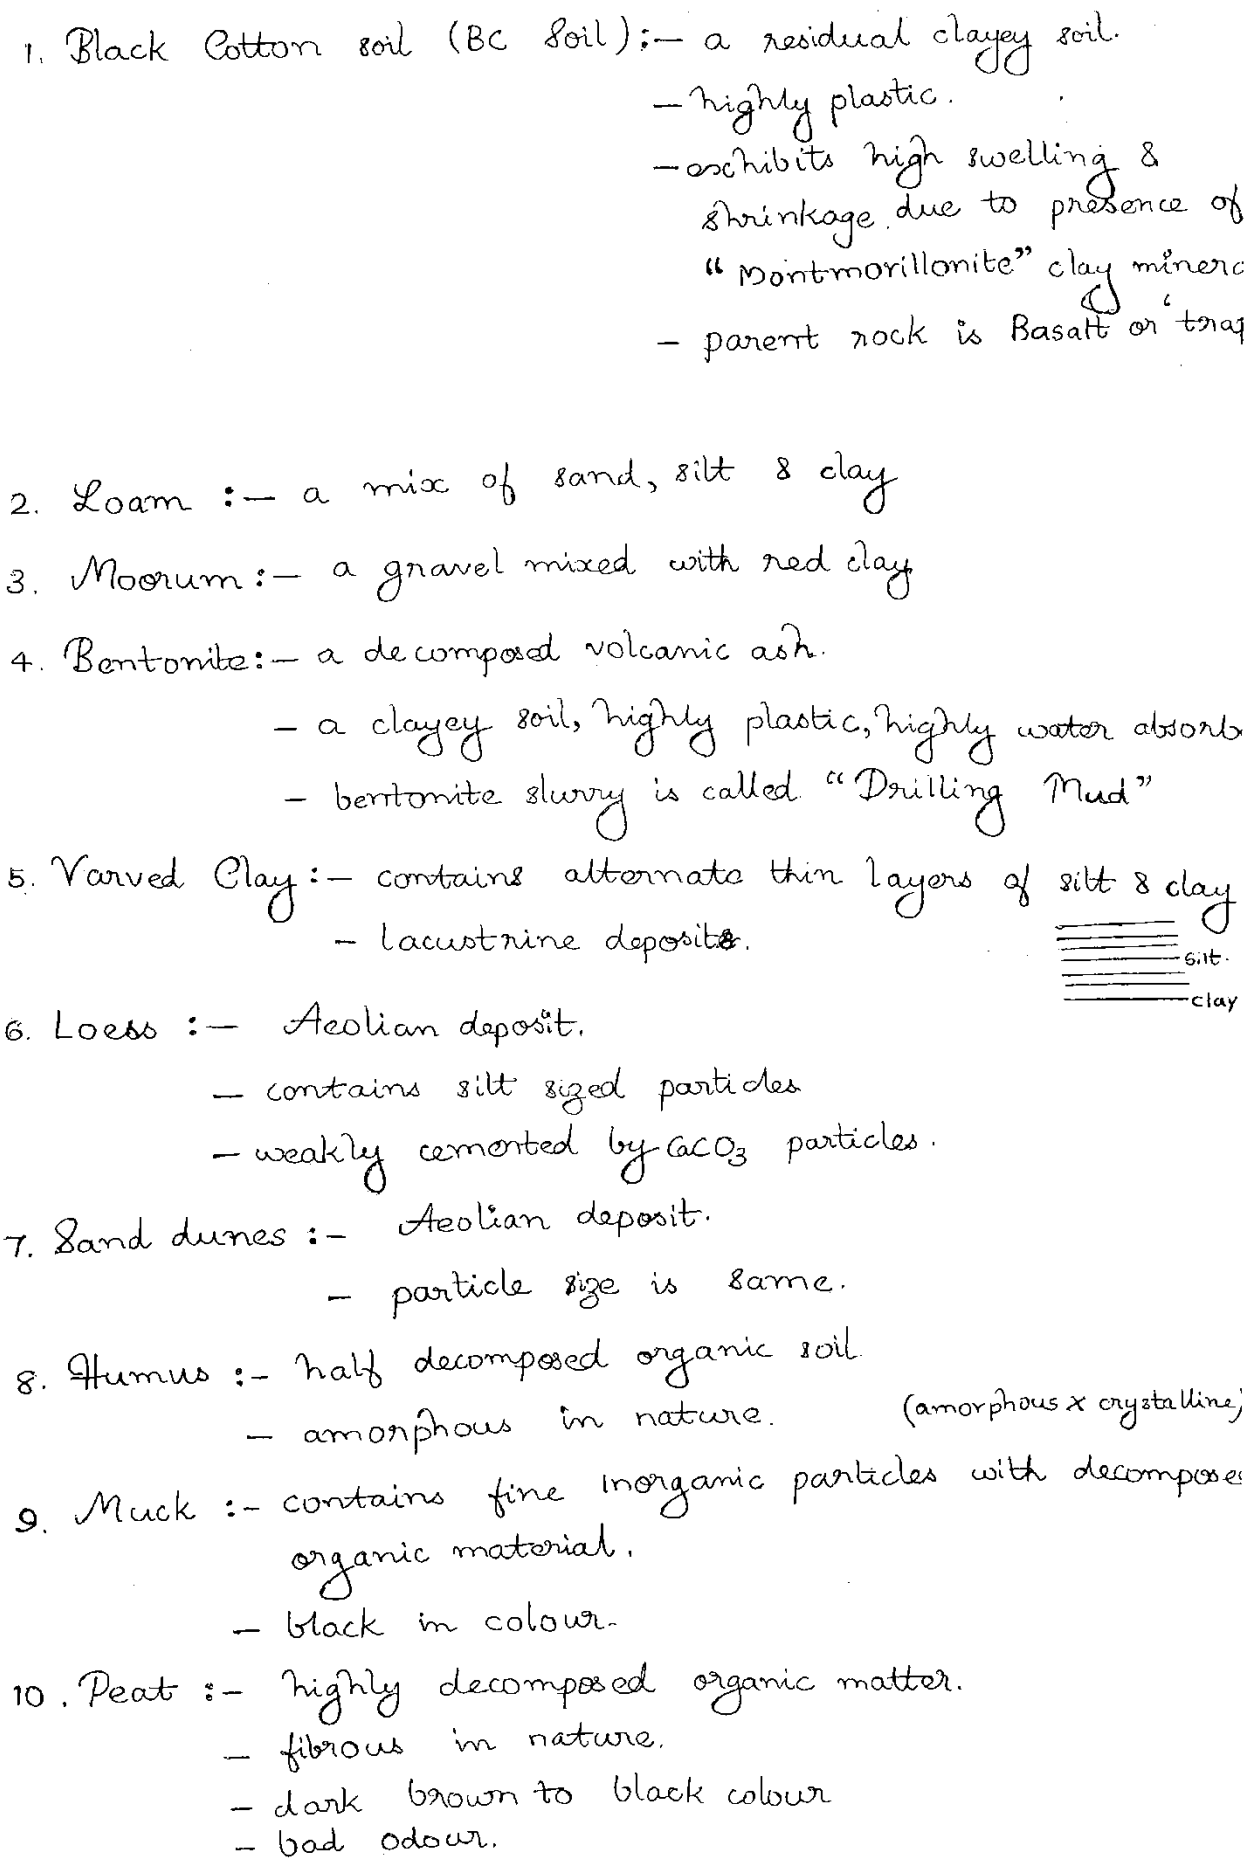 1. Black Cotton soil (BC Soil):— a residual clayey soil.
— highly plastic.
— exhibits high swelling &
shrinkage due to presence of
"Montmorillonite" clay minera
— parent rock is Basalt or 'trap
2. Loam :— a mix of sand, silt & clay
3. Moorum:— a gravel mixed with red clay
4. Bentonite:— a decomposed volcanic ash.
— a clayey soil, highly plastic, highly water absorb
— bentonite slurry is called "Drilling Mud"
5. Varved Clay:— contains alternate thin layers of silt & clay
— lacustrine deposits.
silt.
clay
6. Loess :— Aeolian deposit.
— contains silt sized particles
— weakly cemented by CaCO3 particles.
7. Sand dunes :— Aeolian deposit.
— particle size is same.
8. Humus :— half decomposed organic soil
— amorphous in nature. (amorphous x crystalline)
9. Muck :— contains fine inorganic particles with decompose
organic material.
— black in colour.
10. Peat :— highly decomposed organic matter.
— fibrous in nature.
— dark brown to black colour
— bad odour.